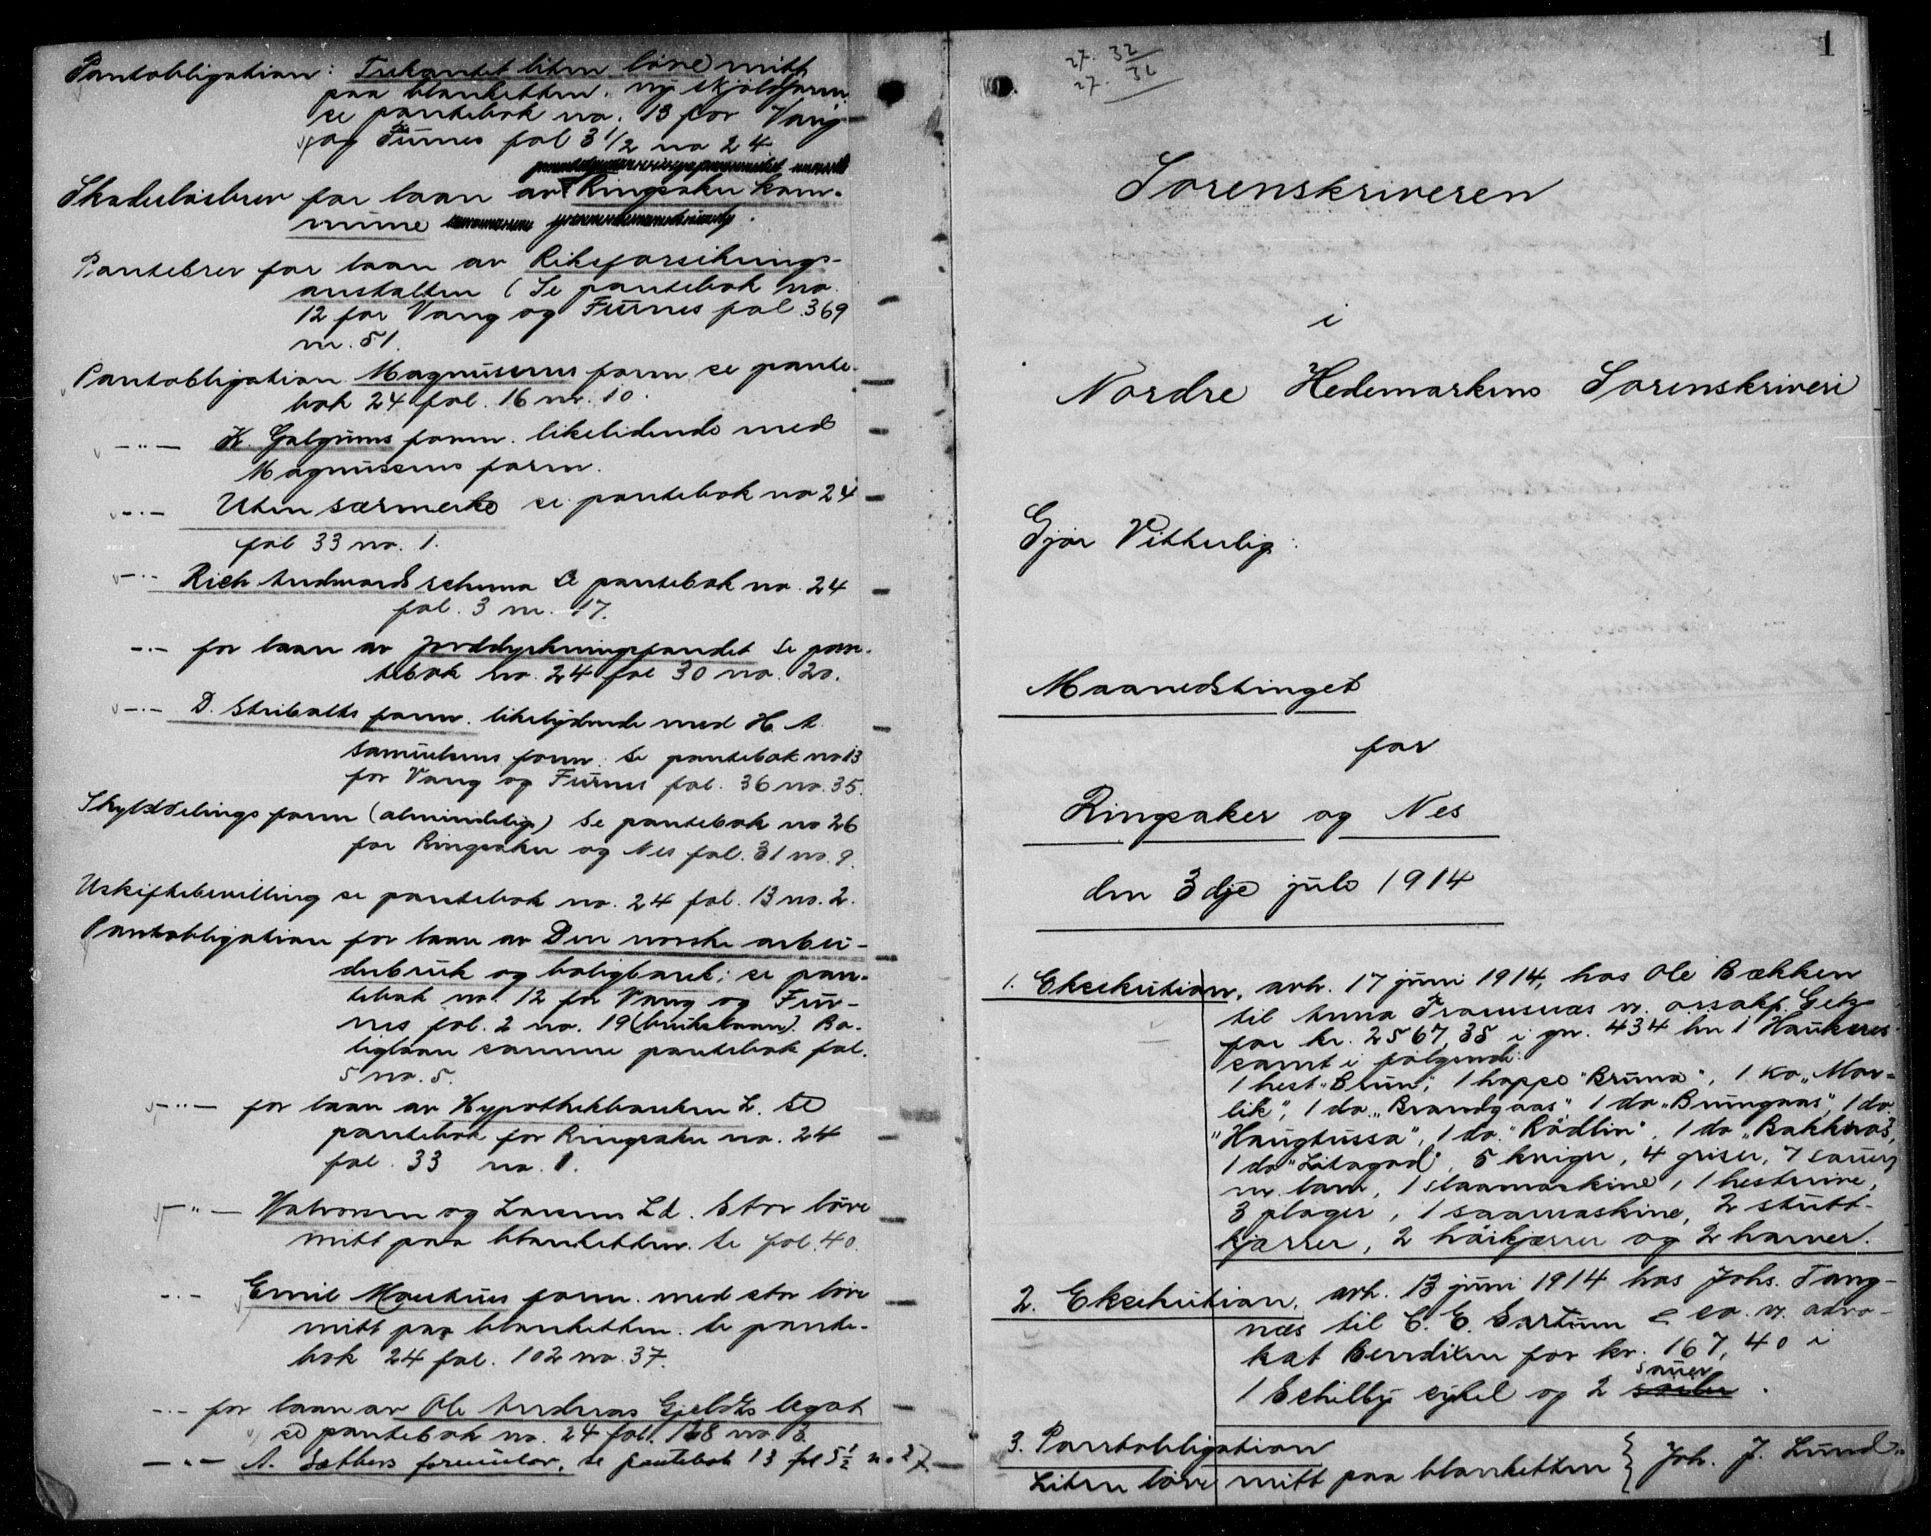 Pantobligation: Trekantet liten løve mitt
paa blanketten. ny skjøldform
se pantebok no. 13 for Vang
og Furnes fol 3 1/2 no 24
Skadesløsbrev for laan av Ringsaker kom-
mune
Pantebrev for laan av Riksforsikrings-
anstalten (Se pantebok no.
12 for Vang og Furnes fol. 369
nr. 51.
Pantobligation Magnussens form se pante-
bok 24 fol. 16 nr. 10.
—"— K. Galgums form. likelidende med
Magnussens form.
—"— Uten særmerke se pantebok no 24
fol 33 no. 1.
—"— Rich Andvords schema se pantebok no. 24
fol. 3 nr. 17.
—"— for laan av Jorddyrkningsfondet Se pan-
tebok no. 24 fol 30 no. 20.
—"— D. Stribolts form. likelydende med H. A.
Samuelsens form. Se pantebok no 13
for Vang og Furnes fol. 36 no. 35.
Skylddelings form (almindelig) Se pantebok no 26
for Ringsaker og Nes fol. 31 no. 9.
Uskiftebevilling se pantebok no. 24 fol. 13 no. 2.
Pantobligation for laan av Den norske arbei-
derbruk og boligbank; se pan-
tebok no. 12 for Vang og Fur-
nes fol. 2 no. 19 (brukslaan). Bo-
liglaan samme pantebok fol.
5 no. 5.
—"— for laan av Hypothekbanken L. Se
pantebok for Ringsaker no. 24
fol. 33 no. 1.
—"— Halvorsen og Larsen Ld. Stor løve
mitt paa blanketten. Se fol. 40.
—"— Emil Moestues form. med stor løve
mitt paa blanketten. Se pante-
bok 24 fol. 102 no. 37.
—"— for laan av Ole Andreas Gjeldts legat
se pantebok no. 24 fol. 128 no. 3.
—"— A. Sæthers formular, se pantebok 13 fol 5 1/2 no 27
27. 32
27. 36
1
Sorenskriveren
i
Nordre Hedemarkens Sorenskriveri
Gjør Vitterlig:
Maanedstinget
for
Ringsaker og Nes
den 3dje juli 1914
1. Eksekution, avh. 17 juni 1914, hos Ole Bækken
til Anna Framsnæs v. o.r.sakf. Getz
for kr. 2567,35 i gnr. 434 bn 1 Haukeres
samt i følgende:
1 hest "Brun", 1 hoppe "Bruna", 1 ko "Mor-
lik", 1 do. "Brandgaas", 1 do "Brungaas", 1 do
"Haugtussa", 1 do. "Rødlin", 1 do "Bakkros",
1 do "Litagod", 5 kviger, 4 griser, 7 sauer
m. lam, 1 slaamaskine, 1 hesterive,
3 ploger, 1 saamaskine, 2 stutt-
kjærrer, 2 høikjærrer og 2 harver.
2. Eksekution, avh. 13 juni 1914 hos Johs. Tang-
næs til C. E. Sartum & co. v. advo-
kat Bendixen for kr. 167,40 i
1 Schilby cykel og 2 sauer.
3. Pantobligation
Liten løve mitt paa blanketten } Joh. J. Lund